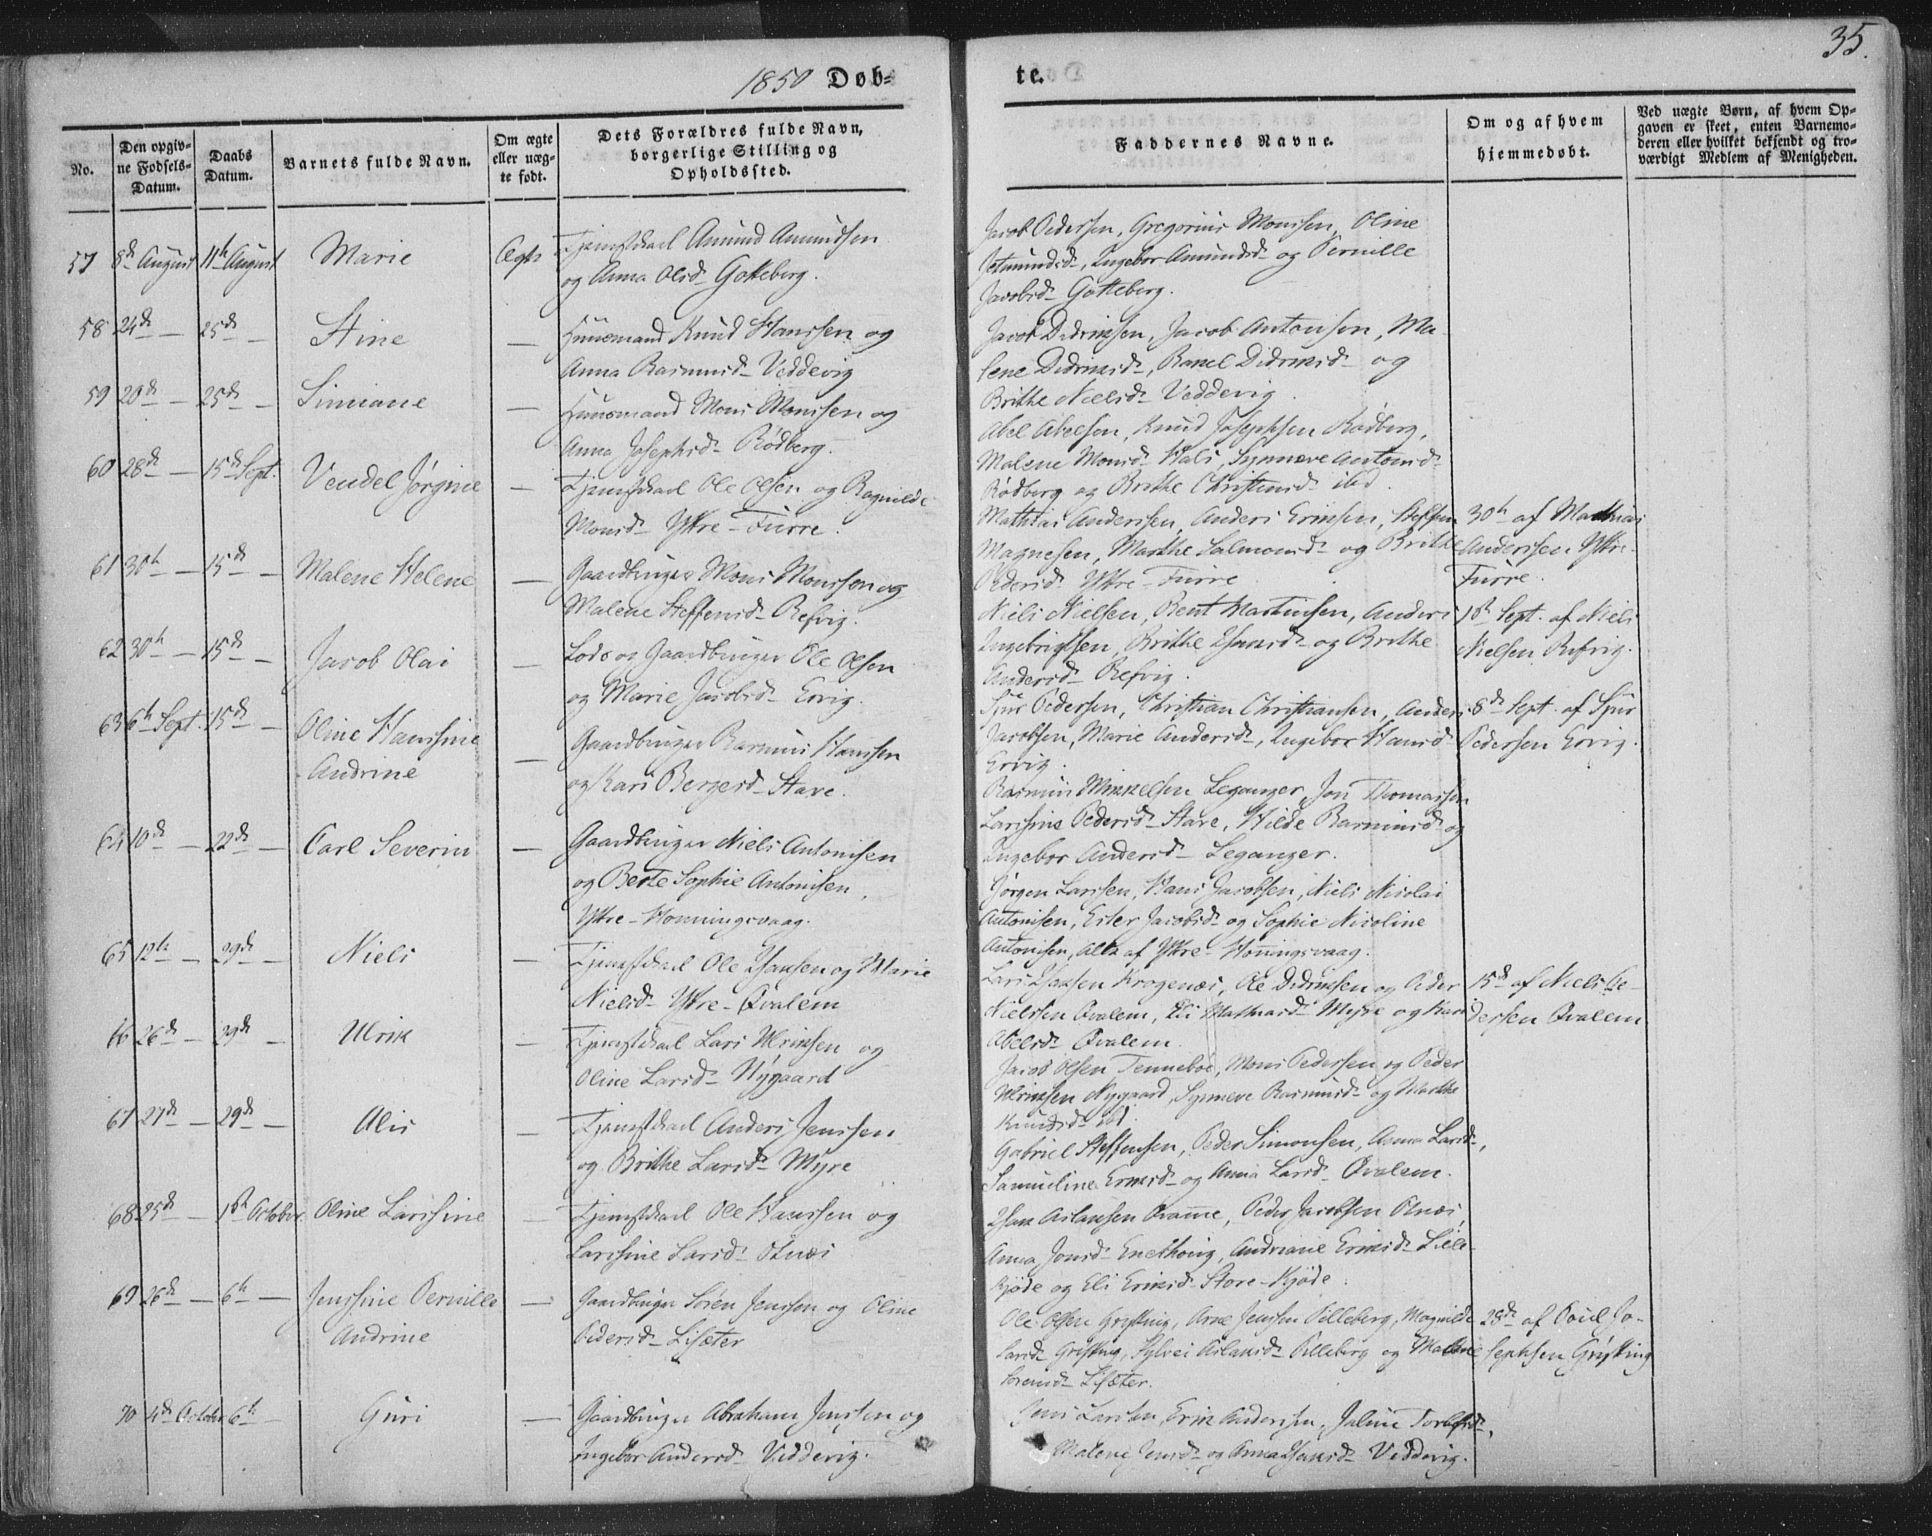 1850 Døb-
te.
35.
No.
Den opgiv-
ne Fødsels-
Datum.
Daabs
Datum.
Barnets fulde Navn.
Om ægte
eller uæg-
te født.
Dets Forældres fulde Navn,
borgerlige Stilling og
Opholdssted.
Faddernes Navne.
Om og af hvem
hjemmedøbt.
Ved uægte Børn, af hvem Op-
gaven er skeet, enten Barnemo-
deren eller hvilket bekjendt og tro-
værdigt Medlem af Menigheden.
57 8de August 11te August Marie Ægte Tjenestkarl Amund Amundsen
og Anna Olsd. Gotteberg.
Jacob Pedersen, Gregorius Monssen, Oline
Jetmundsd., Ingebor Amundsd. og Pernille
Jacobsd. Gotteberg.
58 24de — 25de — Stine — Huusmand Knud Hanssen og
Anna Rasmusd. Veddevig
Jacob Didriksen, Jacob Antonisen, Ma-
lene Didriksd., Ranel Didriksd. og
Brithe Nielsd. Veddevig.
59 20de — 25de — Simiane — Huusmand Mons Monssen og
Anna Josephsd. Rödberg.
Abel Abelsen, Knud Josephsen Rödberg,
Malene Monsd. Hals, Synneve Antonisd.
Rödberg og Brithe Christensd. ibid.
60 28de — 15de Sept. Vendel Jørgine — Tjenestkarl Ole Olsen og Ragnilde
Monsd. Ytre-Furre.
Mathias Andersen, Anders Eriksen, Steffen
Magnesen, Marthe Salmonsd. og Brithe
Pedersd. Ytre-Furre
30te af Mathias
Andersen Ytre-
Furre.
61 30te — 15de — Malene Helene — Gaardbruger Mons Monssen og
Malene Steffensd. Refvig.
Niels Nielsen, Bent Martinsen, Anders
Ingebrigtsen, Brithe Isaacsd. og Brithe
Andersd. Refvig.
1ste Sept. af Niels
Nielsen Refvig.
62 30te — 15de — Jacob Olai — Lods og Gaardbruger Ole Olsen
og Marie Jacobsd. Ervig.
Sjur Pedersen, Christian Christiansen, Anders
Jacobsen, Marie Andersd., Ingebor Hansd.
Ervig.
8de Sept. af Sjur
Pedersen Ervig.
63 6te Sept. 15de — Oline Hanssine
Andrine — Gaardbruger Rasmus Hanssen
og Kari Bergersd. Stave.
Rasmus Mikkelsen Leganger, Jon Thomassen
Larssine Pedersd. Stave, Hilde Rasmusd. og
Ingebor Andersd. Leganger.
64 10de — 22de — Carl Severin — Gaardbruger Niels Antonisen
og Berte Sophie Antonisen,
Ytre-Honningsvaag.
Jørgen Larssen, Hans Jacobsen, Niels Nicolai
Antonisen, Ester Jacobsd. og Sophie Nicoline
Antonisen, Alle af Ytre-Honingsvaag.
65 12te — 29de — Niels — Tjenestkarl Ole Isaksen og Marie
Nielsd. Ytre-Qvalem
Lars Isaksen Krogenæs, Ole Didriksen og Peder
Nielssen Qvalem, Eli Mathiasd. Myre og Kari
Abelsd. Qvalem.
15de af Niels Pe-
dersen Qvalem
66 26de — 29de — Ulrik — Tjenestkarl Lars Ulriksen og
Oline Larsd. Nygaard
Jacob Olsen Tenneboe, Mons Pedersen og Peder
Ulriksen Nygaard, Synneve Rasmusd. og Marthe
Knudsd. ibd.
67 27de — 29de — Alis — Tjenestkarl Anders Jenssen
og Brithe Larsd. Myre
Gabriel Steffensen, Peder Simonsen, Anna Larsd.,
Samueline Eriksd. og Anna Larsd. Qvalem.
68 25de — 1ste October Oline Larssine — Tjenestkarl Ole Hanssen og
Larssine Larsd. Otnæs
Isak Aslaksen Qvamme, Peder Jacobsen Otnæs,
Anna Jonsd. Enekoug, Andriane Eriksd. Lille-
Kjöde og Eli Eriksd. Store-Kjöde.
69 26de — 6te — Jenssine Pernille
Andrine — Gaardbruger Sören Jenssen og Oline
Pedersd. Lisæter
Ole Olsen Gryting, Arne Jenssen Pilleberg, Magnilde
Larsd. Gryting, Sylvei Aslaksd. Pilleberg og Malene
Sörensd. Lisæter.
28de af Poul Jo-
sephsen Gryting
70 4de October 6te — Guri — Gaardbruger Abraham Jenssen og
Ingebor Andersd. Veddevig.
Jens Larssen, Erik Anderssen, Jaline Torlefsd.,
Malene Jensd. og Anna Isaksd. Veddevig.